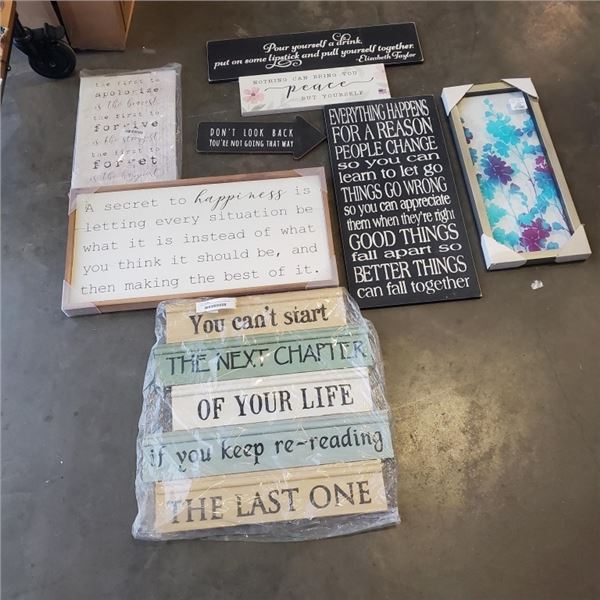 Pour yourself a drink,
put on some lipstick and pull yourself together.
-Elizabeth Taylor
NOTHING CAN BRING YOU
peace
BUT YOURSELF
DON'T LOOK BACK
YOU'RE NOT GOING THAT WAY
the first to
apologize
is the bravest
the first to
forgive
is the strongest
the first to
forget
is the happiest
EVERYTHING HAPPENS
FOR A REASON
PEOPLE CHANGE
so you can
learn to let go
THINGS GO WRONG
so you can appreciate
them when they're right
GOOD THINGS
fall apart so
BETTER THINGS
can fall together
A secret to happiness is
letting every situation be
what it is instead of what
you think it should be, and
then making the best of it.
You can't start
THE NEXT CHAPTER
OF YOUR LIFE
if you keep re-reading
THE LAST ONE